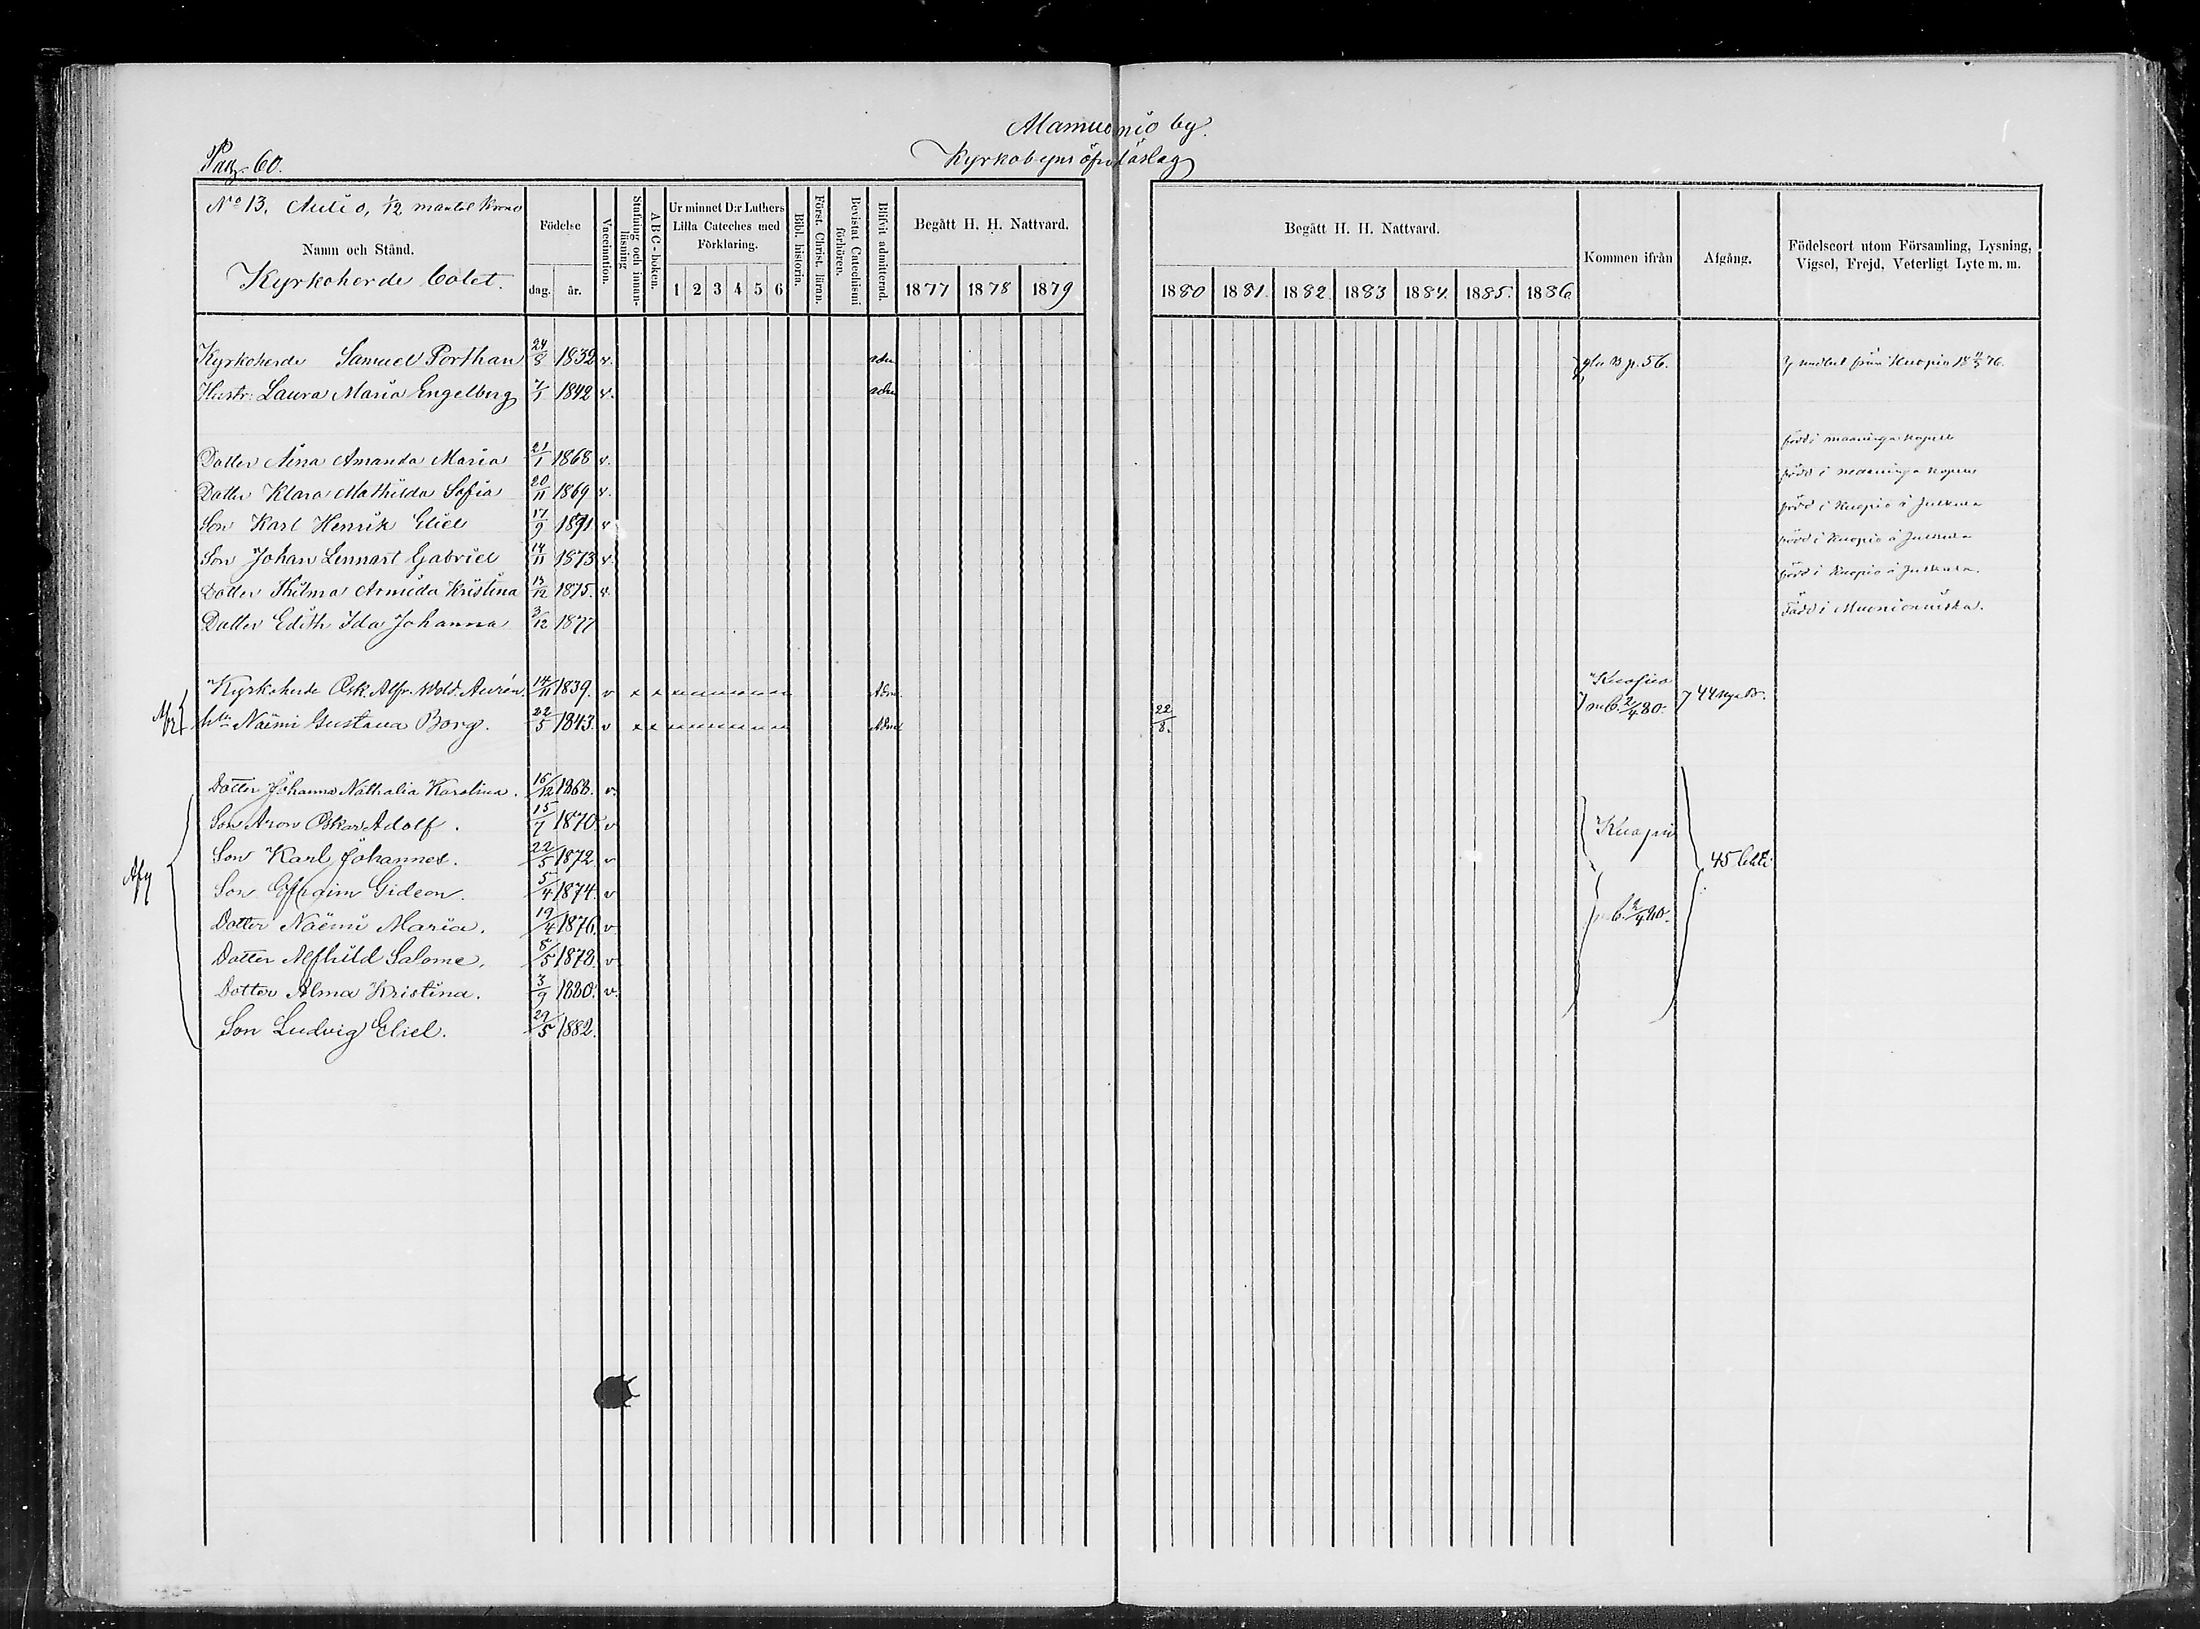 Alamuonio by.
Pag. 60.
Kyrkobyns
No 13. Autio, 1/2 mantal Krono
Namn och Stånd.
Kyrkoherde bolet.
Födelse
dag. år.
Vaccination.
Stafning och innanläsning
ABC-boken.
Ur minnet D:r Luthers Lilla Cateches med Förklaring.
1 2 3 4 5 6
Bibl. historia.
Först. Christ. läran.
Bevistat Catechismi förhören.
Blifvit admitterad.
Begått H. H. Nattvard.
1877 1878 1879
Begått H. H. Nattvard.
1880 1881. 1882. 1883 1884. 1885. 1886.
Kommen ifrån
Afgång.
Födelseort utom Församling, Lysning, Vigsel, Frejd, Veterligt Lyte m. m.
Kyrkoherde Samuel Porthan 24/8 1832 v. p. 56. från Kuopio
Hustr: Laura Maria Engelberg 7/1 1842 v.
Dotter Aina Amanda Maria 21/1 1868 v. född i maaninga kapell
Dotter Klara Mathilda Sofia 20/11 1869 v. född i maaninga kapell
Son Karl Henrik Eliel 17/9 1871 v. född i Kuopio å Julkula
Son Johan Lennart Gabriel 14/11 1873 v. född i Kuopio å Julkula
Dotter Hilma Armida Kristina 13/12 1875. v. född i Kuopio å Julkula.
Dotter Edith Ida Johanna 3/12 1877 Född i Muonionniska.
Kyrkoherde Osk. Alfr. Wold. Aurén. 14/11 1839. v x x Kuopio
Naëmi Gustava Borg. 22/5 1843. v x x 22/8. 2/4 80. 44 nya B.
Dotter Johanna Nathalia Karolina. 16/12 1868. v.
Son Aron Oskar Adolf. 15/7 1870. v Kuopio
Son Karl Johannes. 22/5 1872 v 45
Son Efraim Gideon. 5/4 1874. v
Dotter Naëmi Maria. 19/4 1876. v 2/4 80.
Dotter Alfhild Salome. 8/5 1878. v
Dotter Alma Kristina. 3/9 1880. v.
Son Ludvig Eliel. 29/5 1882.